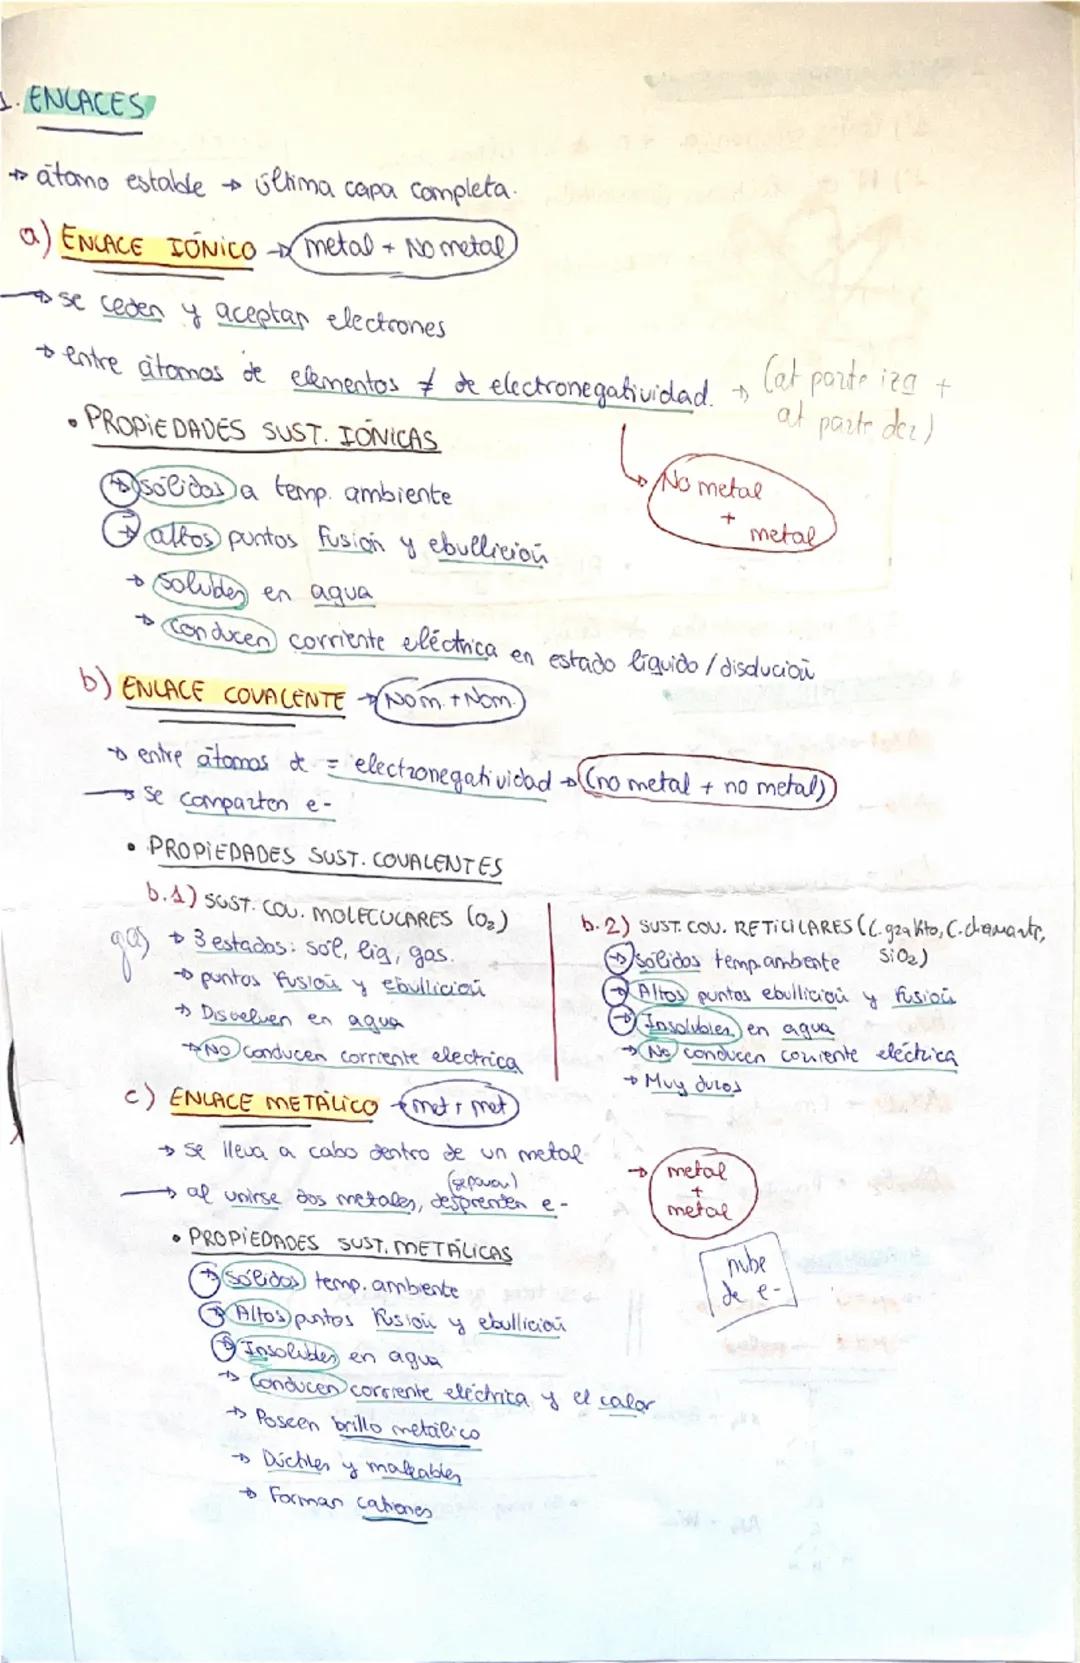 1. ENLACES
→ átomo estable → última capa completa.
a) ENLACE IÓNICO → metal + No metal
→ se ceden y aceptan electrones
→ entre átomos de elementos ≠ de electronegatividad. → (at parte izq +
at parte der)
• PROPIEDADES SUST. IÓNICAS
No metal
+
metal
→ sólidos a temp. ambiente
→ altos puntos fusión y ebullición
→ solubles en agua
→ conducen corriente eléctrica en estado líquido / disolución
b) ENLACE COVALENTE → Nom. + Nom.
→ entre átomos de = electronegatividad → (no metal + no metal)
→ se comparten e-
• PROPIEDADES SUST. COVALENTES
b.1) SUST. COV. MOLECULARES (O2)
gas → 3 estados: sól, liq, gas.
→ puntos fusión y ebullición
→ Disuelven en agua
→ NO conducen corriente electrica
b.2) SUST. COV. RETICULARES (C. grafito, C. diamante,
SiO2)
→ sólidos temp. ambiente
→ Altos puntos ebullición y fusión
→ Insolubles en agua
→ No conducen corriente eléctrica
→ Muy duros
c) ENLACE METÁLICO → met + met
→ se lleva a cabo dentro de un metal
(separan)
→ al unirse dos metales, desprenden e-
→ metal
+
metal
nube
de e-
• PROPIEDADES SUST. METÁLICAS
→ Sólidos temp. ambiente
→ Altos puntos fusión y ebullición
→ Insolubles en agua
→ Conducen corriente eléctrica y el calor
→ Poseen brillo metálico
→ Dúctiles y maleables
→ Forman cationes